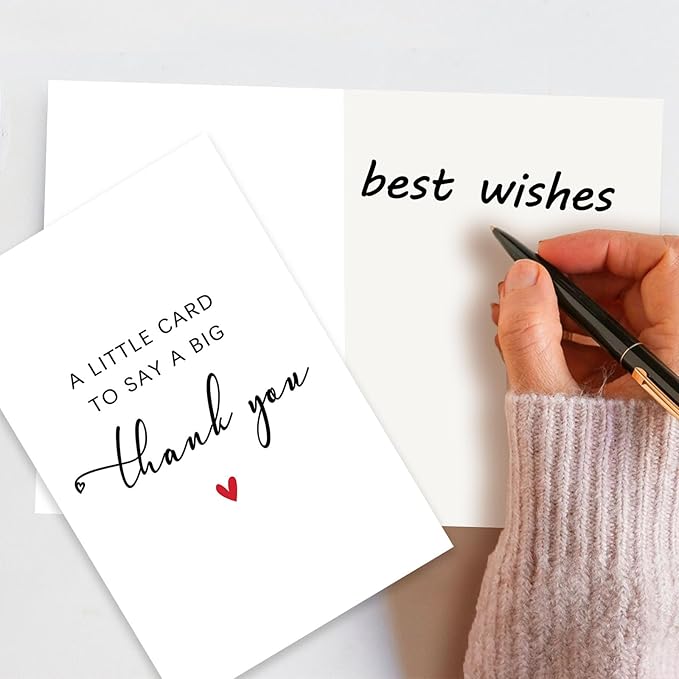 A LITTLE CARD
TO SAY A BIG
thank you
best wishes